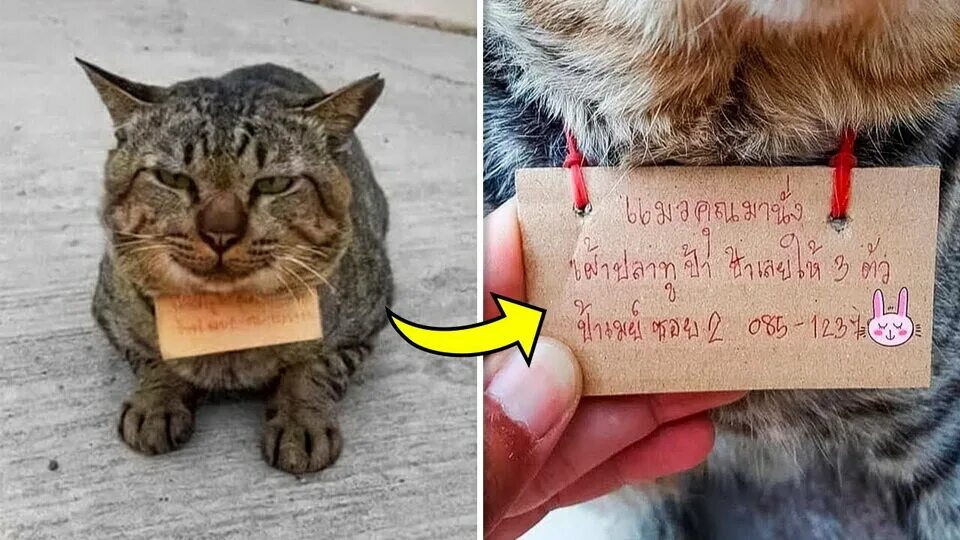 แมวคุณมานั่ง
เฝ้าปลาทู ป้าเลยให้ 3 ตัว
ป้าเมย์ ซอย 2 085-1237